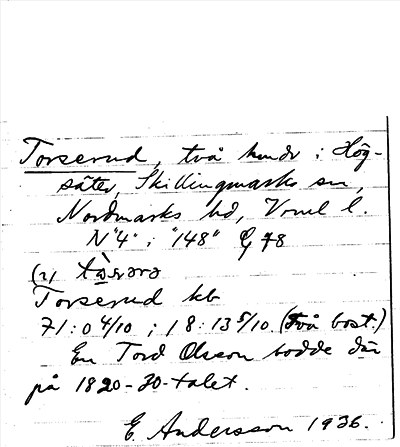 Torserud, två hmdr i Hög-
säter, Skillingmarks sn,
Nordmarks hd, Vrml l.
N "4" i "148" G 78
(2) tà̱sərə
Torserud kb
71:0 4/10 ; 18:13 5/10. (Två bost.)
En Tord Olsson bodde där
på 1820-30-talet.
E. Andersson 1936.